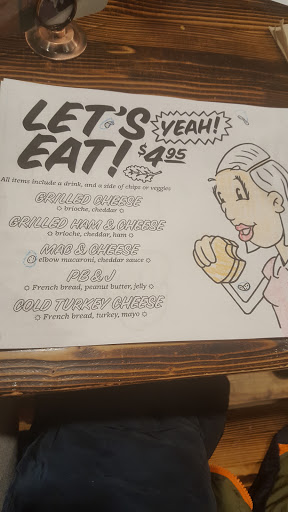 LET'S
YEAH!
EAT! $4.95
All items include a drink, and a side of chips or veggies
GRILLED CHEESE
brioche, cheddar
GRILLED HAM & CHEESE
brioche, cheddar, ham
MAC & CHEESE
elbow macaroni, cheddar sauce
PB & J
French bread, peanut butter, jelly
COLD TURKEY CHEESE
French bread, turkey, mayo